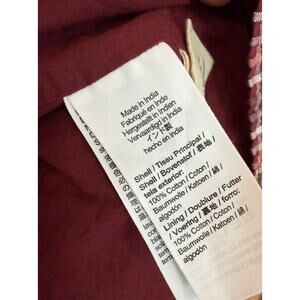 Made in India
Fabriqué en Inde
Hergestellt in Indien
Vervaardigd in India
インド製
hecho en India
Shell / Tissu Principal /
Shell / Bovenstof / 表地 /
tela exterior:
100% Cotton / Coton /
Baumwolle / Katoen / 綿 /
algodón
Lining / Doublure / Futter
/ Voering / 裏地 / forro:
100% Cotton / Coton /
Baumwolle / Katoen / 綿 /
algodón